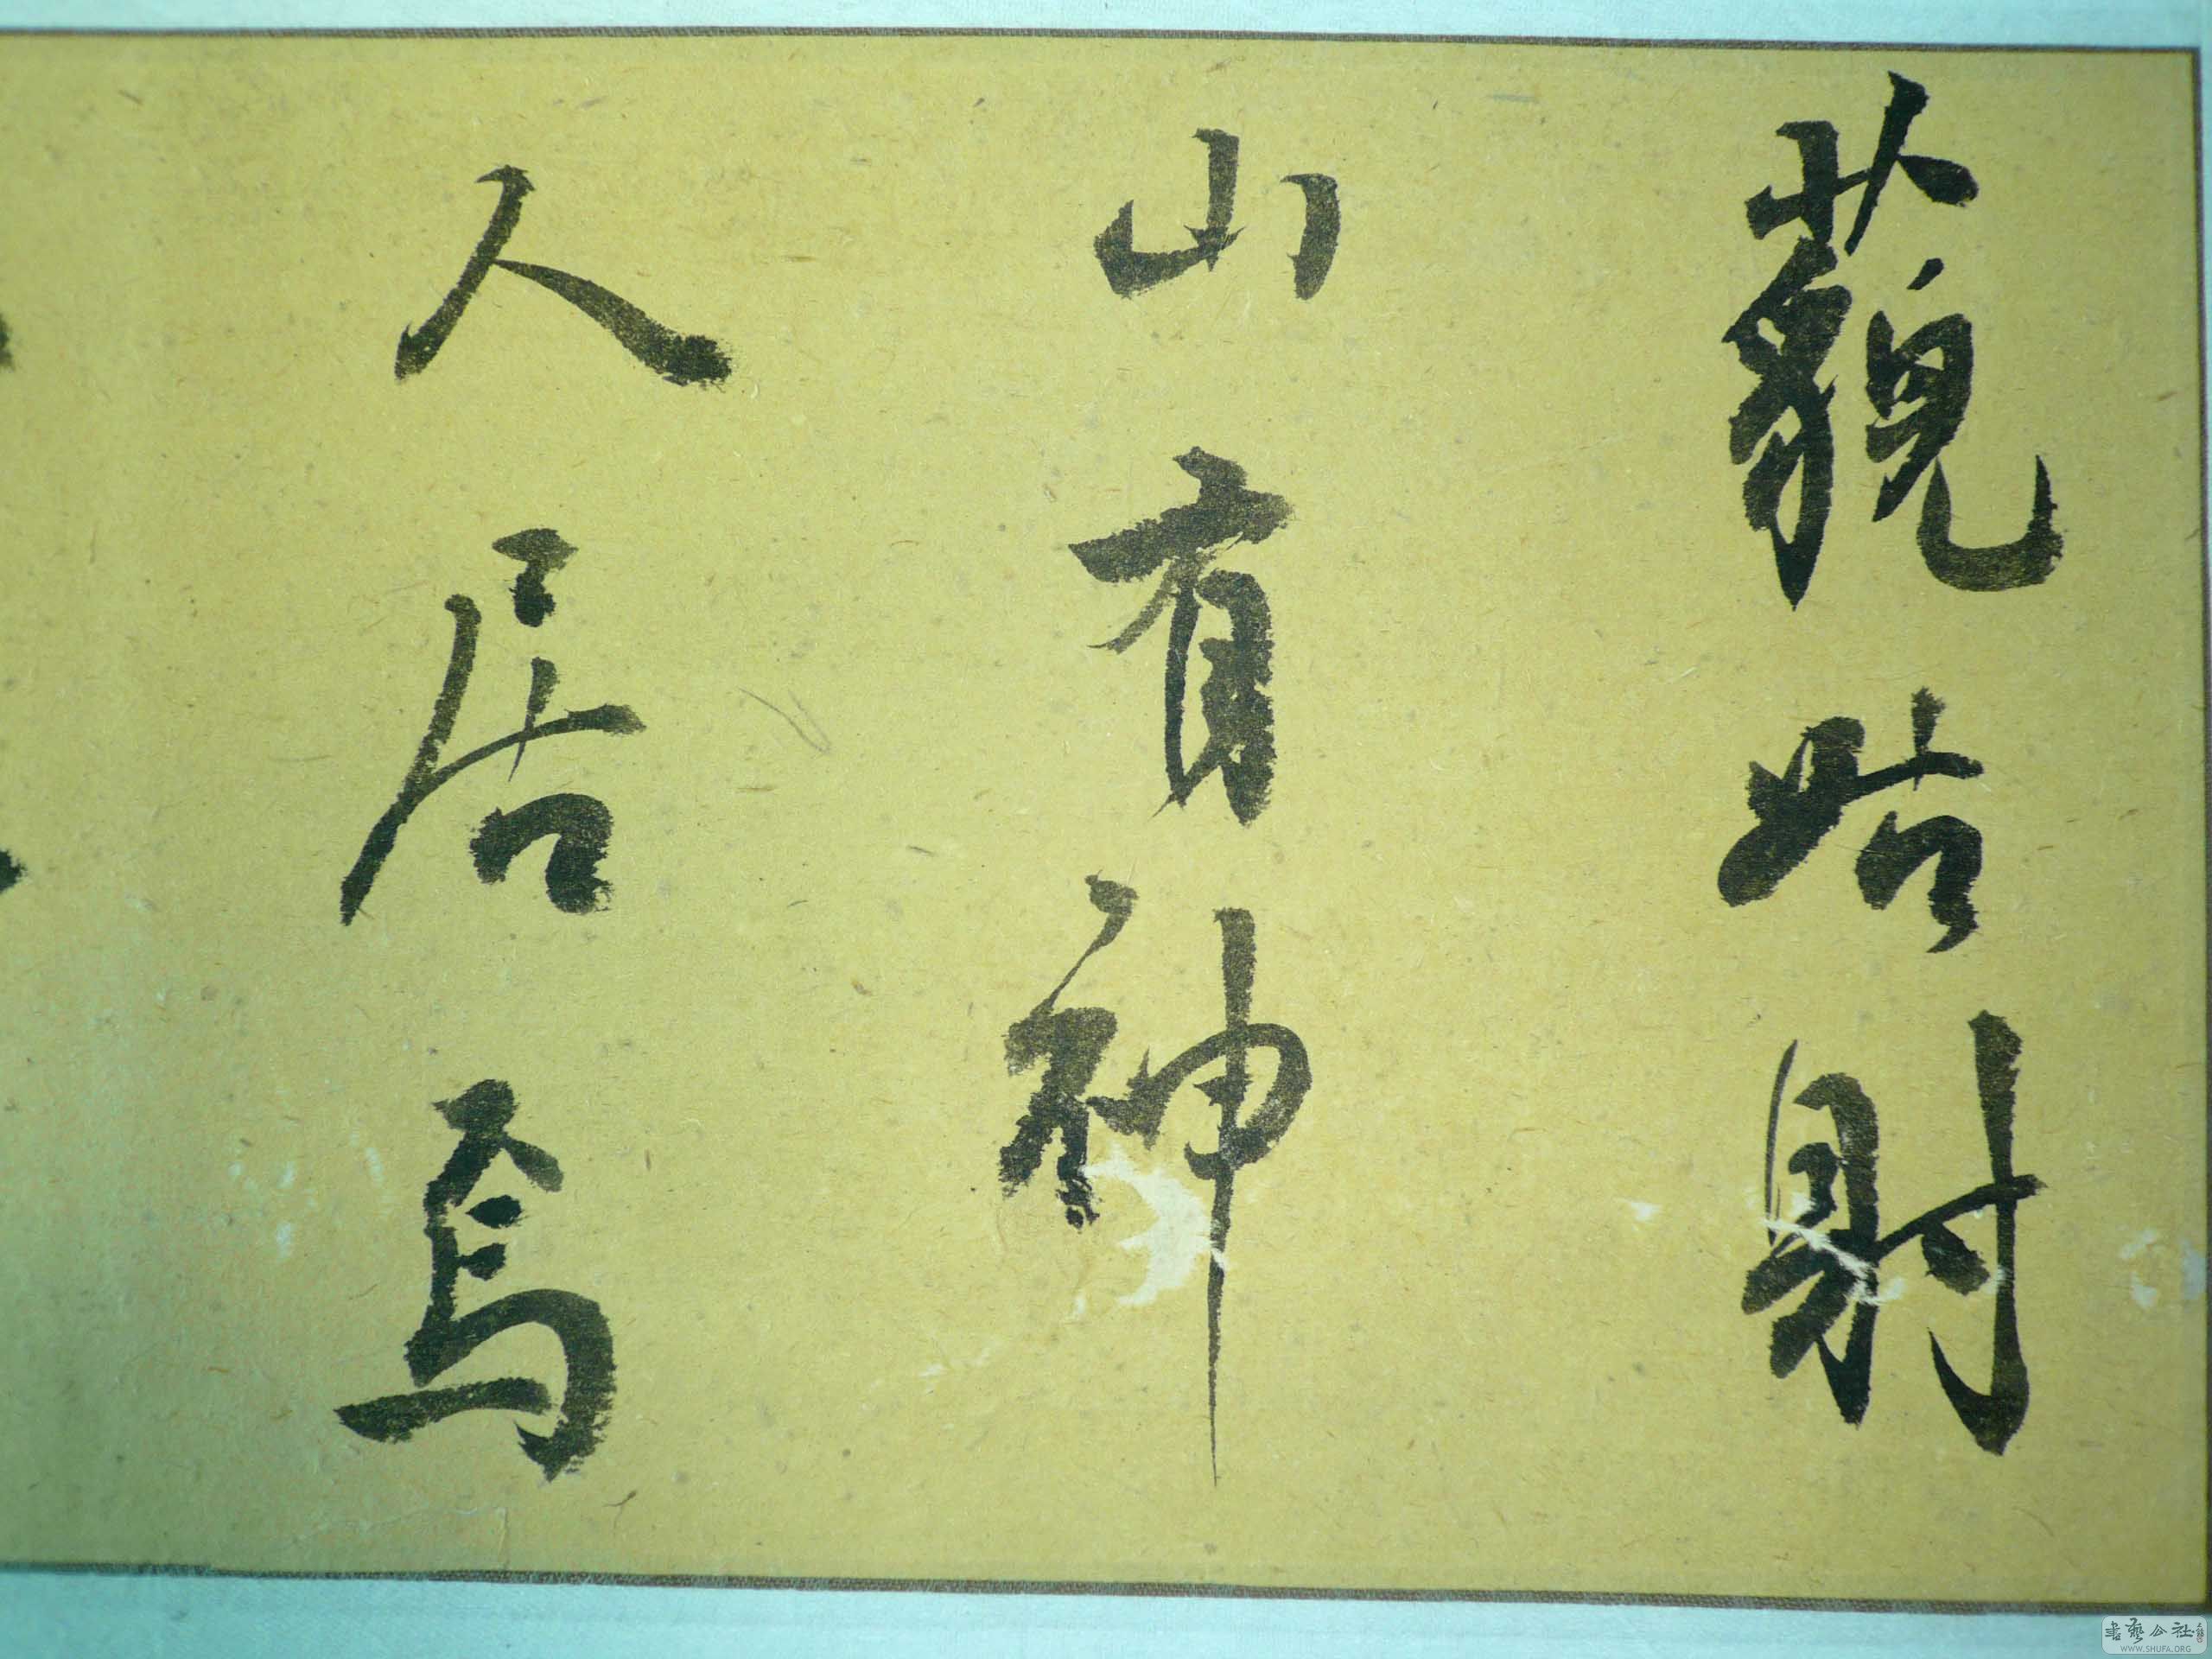 藐姑射
山有神
人居焉
書藝公社
WWW.SHUFA.ORG